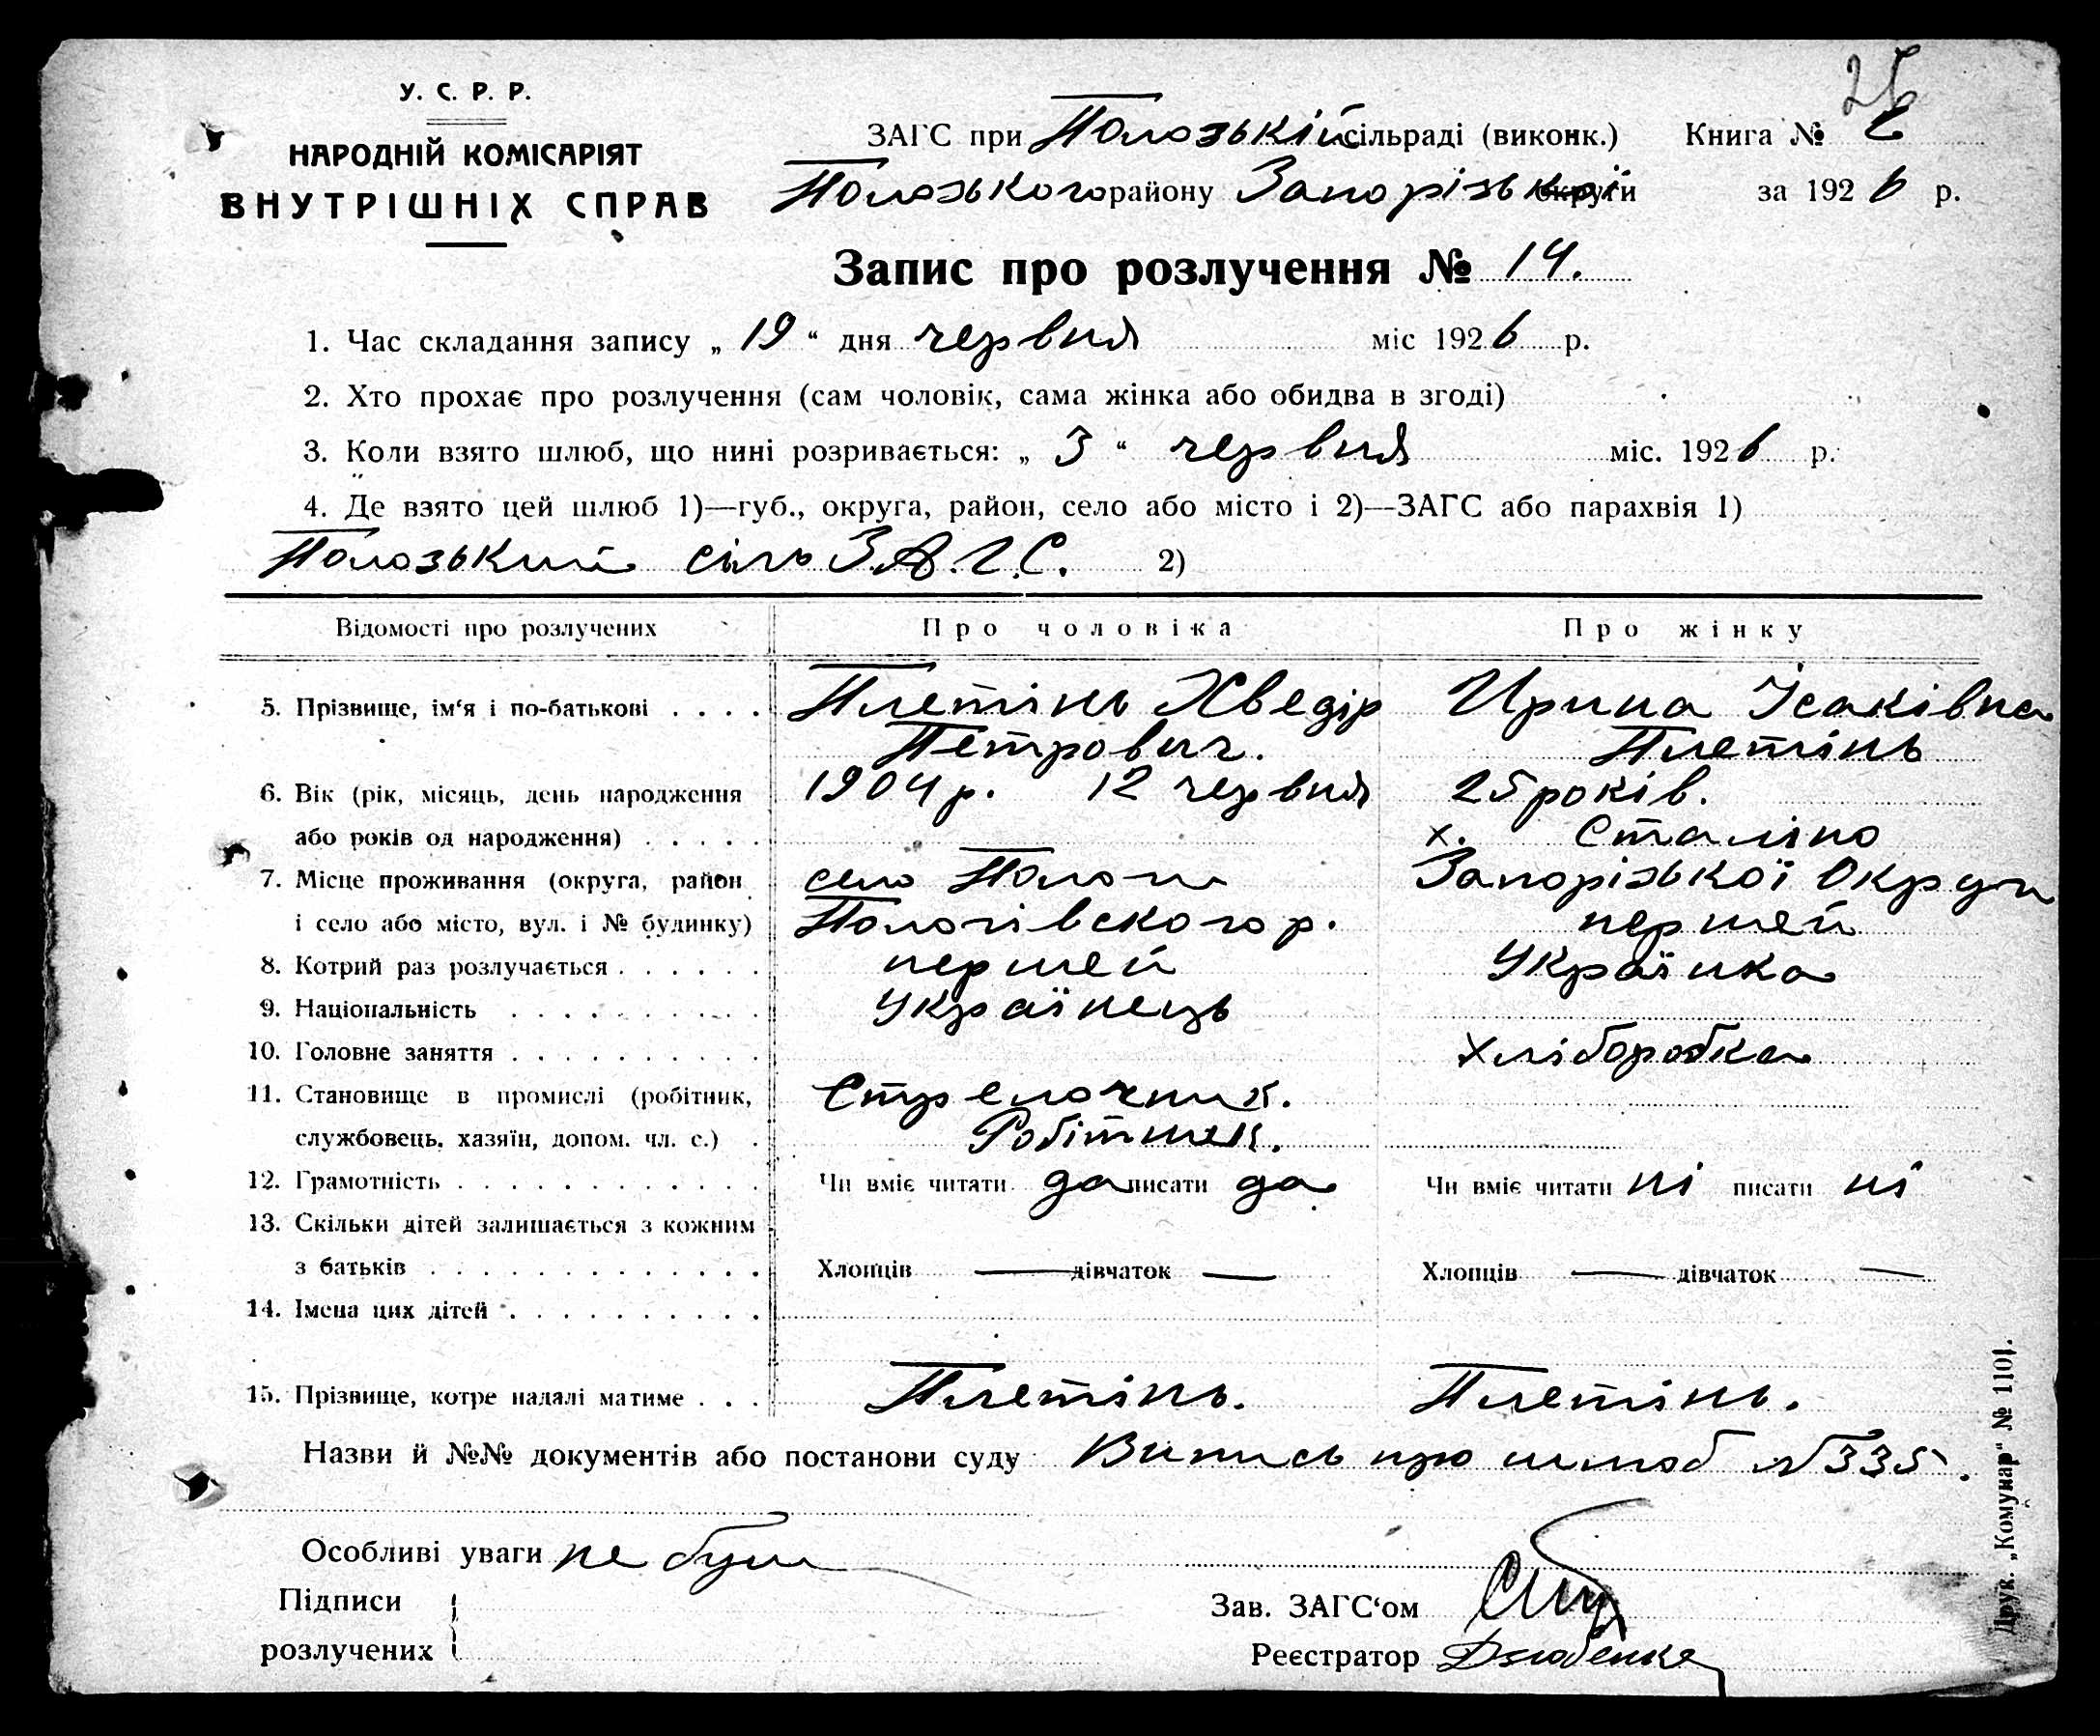 25
У. С. Р. Р.
НАРОДНІЙ КОМІСАРІЯТ
ВНУТРІШНІХ СПРАВ
ЗАГС при Полозькій сільраді (виконк.) Книга №
Полозького району Запорізької округи за 1926 р.
Запис про розлучення № 14.
1. Час складання запису „ 19 “ дня червня міс 1926 р.
2. Хто прохає про розлучення (сам чоловік, сама жінка або обидва в згоді)
3. Коли взято шлюб, що нині розривається: „ 3 “ червня міс. 1926 р.
4. Де взято цей шлюб 1)—губ., округа, район, село або місто і 2)—ЗАГС або парахвія 1)
Полозький сіль З.А.Г.С. 2)
Відомості про розлучених Про чоловіка Про жінку
5. Прізвище, ім‘я і по-батькові . . . . Плетінь Хведір Ирина Ісаківна
Петрович. Плетінь
6. Вік (рік, місяць, день народження 1904 р. 12 червня 25 років.
або років од народження) . . . . . х. Сталіно
7. Місце проживання (округа, район село Пологи Запорізької Округи
і село або місто, вул. і № будинку) Пологівского р. першей
8. Котрий раз розлучається . . . . . . першей Українка
9. Національність . . . . . . . . . . Українець
10. Головне заняття . . . . . . . . . . Хліборобка
11. Становище в промислі (робітник, Стрелочник.
службовець, хазяїн, допом. чл. с.) . Робітник.
12. Грамотність . . . . . . . . . . . . Чи вміє читати да писати да Чи вміє читати ні писати ні
13. Скільки дітей залишається з кожним
з батьків . . . . . . . . . . . . . Хлопців — дівчаток — Хлопців — дівчаток —
14. Імена цих дітей . . . . . . . . . .
15. Прізвище, котре надалі матиме . . . Плетінь. Плетінь.
Назви й №№ документів або постанови суду Випись про шлюб № 335.
Особливі уваги не були
Підписи
розлучених
Зав. ЗАГС‘ом
Реєстратор Дзюбенко
Друк. „Комунар“ № 1101.